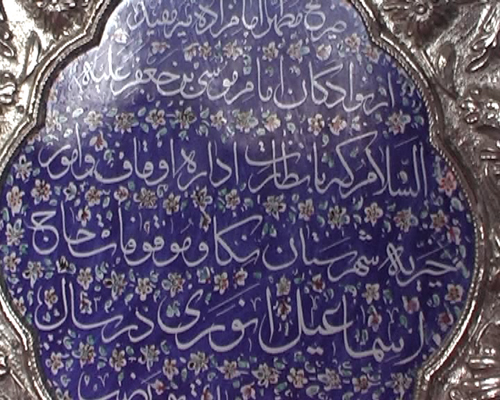 ضریح مطهر امامزاده میر مفید
از نوادگان امام موسی بن جعفر علیه
السلام که با نظارت اداره اوقاف و امور
خیریه شهرستان نکا و موقوفات حاج
اسماعیل انوری در سال